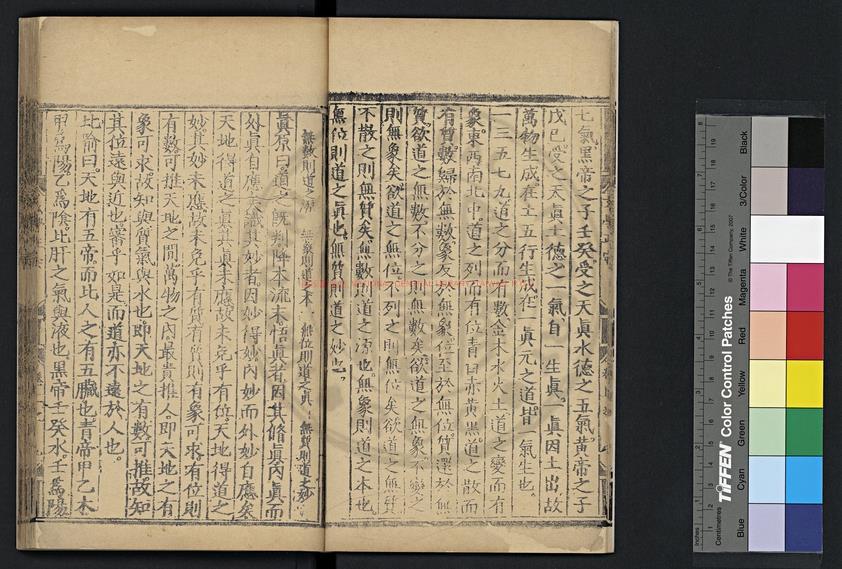 七氣黑帝之子壬癸受之天真水德之五氣黃帝之子
戊己受之天真土德之一氣自一生真真因土出故
萬物生成在土五行生成在一真元之道皆一氣生也
一三五七九道之分而有數金木水火土道之變而有
象東西南北中道之列而有位青白赤黃黑道之散而
有質數歸於無數象反於無象位至於無位質還於無
質欲道之無數不分之則無數矣欲道之無象不變之
則無象矣欲道之無位不列之則無位矣欲道之無質
不散之則無質矣無數則道之源也無象則道之本也
無位則道之真也無質則道之妙也
無數則道之源 無象則道之本 無位則道之真 無質則道之妙
真原曰道之既判降本流末悟真者因真修真內真而
外真自應矣識妙者因妙得妙內妙而外妙自應矣
天地得道之真其真未應故未免乎有位天地得道之
妙其妙未應故未免乎有質有質則有象可求有位則
有數可推天地之間萬物之內最貴惟人即天地之有
象可求故知與質氣與水也即天地之有數可推故知
其位遠與近也審乎如是而道亦不遠於人也
比喻曰天地有五帝而比人之有五臟也青帝甲乙木
甲為陽乙為陰比肝之氣與液也黑帝壬癸水壬為陽
TIFFEN Color Control Patches
© The Tiffen Company, 2007
Inches
Centimetres
Blue
Cyan
Green
Yellow
Red
Magenta
White
3/Color
Black